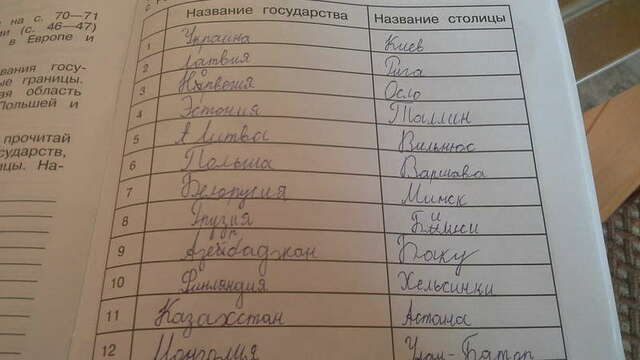 на с. 70—71
(с. 46—47)
в Европе и
госу-
ые границы.
область
Польшей и
прочитай
сударств,
ицы. На-
Название государства Название столицы
1 Украина Киев
2 Латвия Рига
3 Норвегия Осло
4 Эстония Таллин
5 Литва Вильнюс
6 Польша Варшава
7 Белорусия Минск
8 Грузия
9 Азербаджан Баку
10 Финляндия Хельсинки
11 Казахстан Астана
12 Монголия Улан-Батор